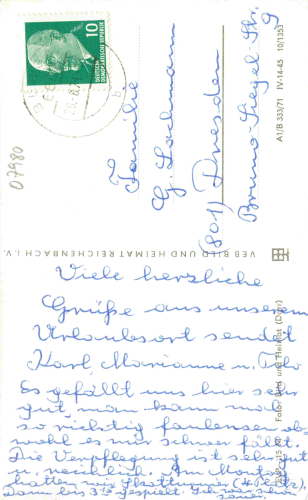 10
DEUTSCHE
DEMOKRATISCHE REPUBLIK
07980
Familie
G. Lachmann
8011 Dresden
Bruno-Siegel-Str.
9
A1/B 333/71 IV-14-45 10/1353
VEB BILD UND HEIMAT REICHENBACH I.V.
Foto: Bild und Heimat
Viele herzliche
Grüße aus unserem
Urlaubsort sendet
Karl, Marianne u.
Es gefällt uns hier sehr
gut, man kann mal
so richtig faulensen ob-
wohl es mir schwer fällt.
Die Verpflegung ist sehr gut
u. reichlich. Am Montag
hatten wir
bis gespielt.